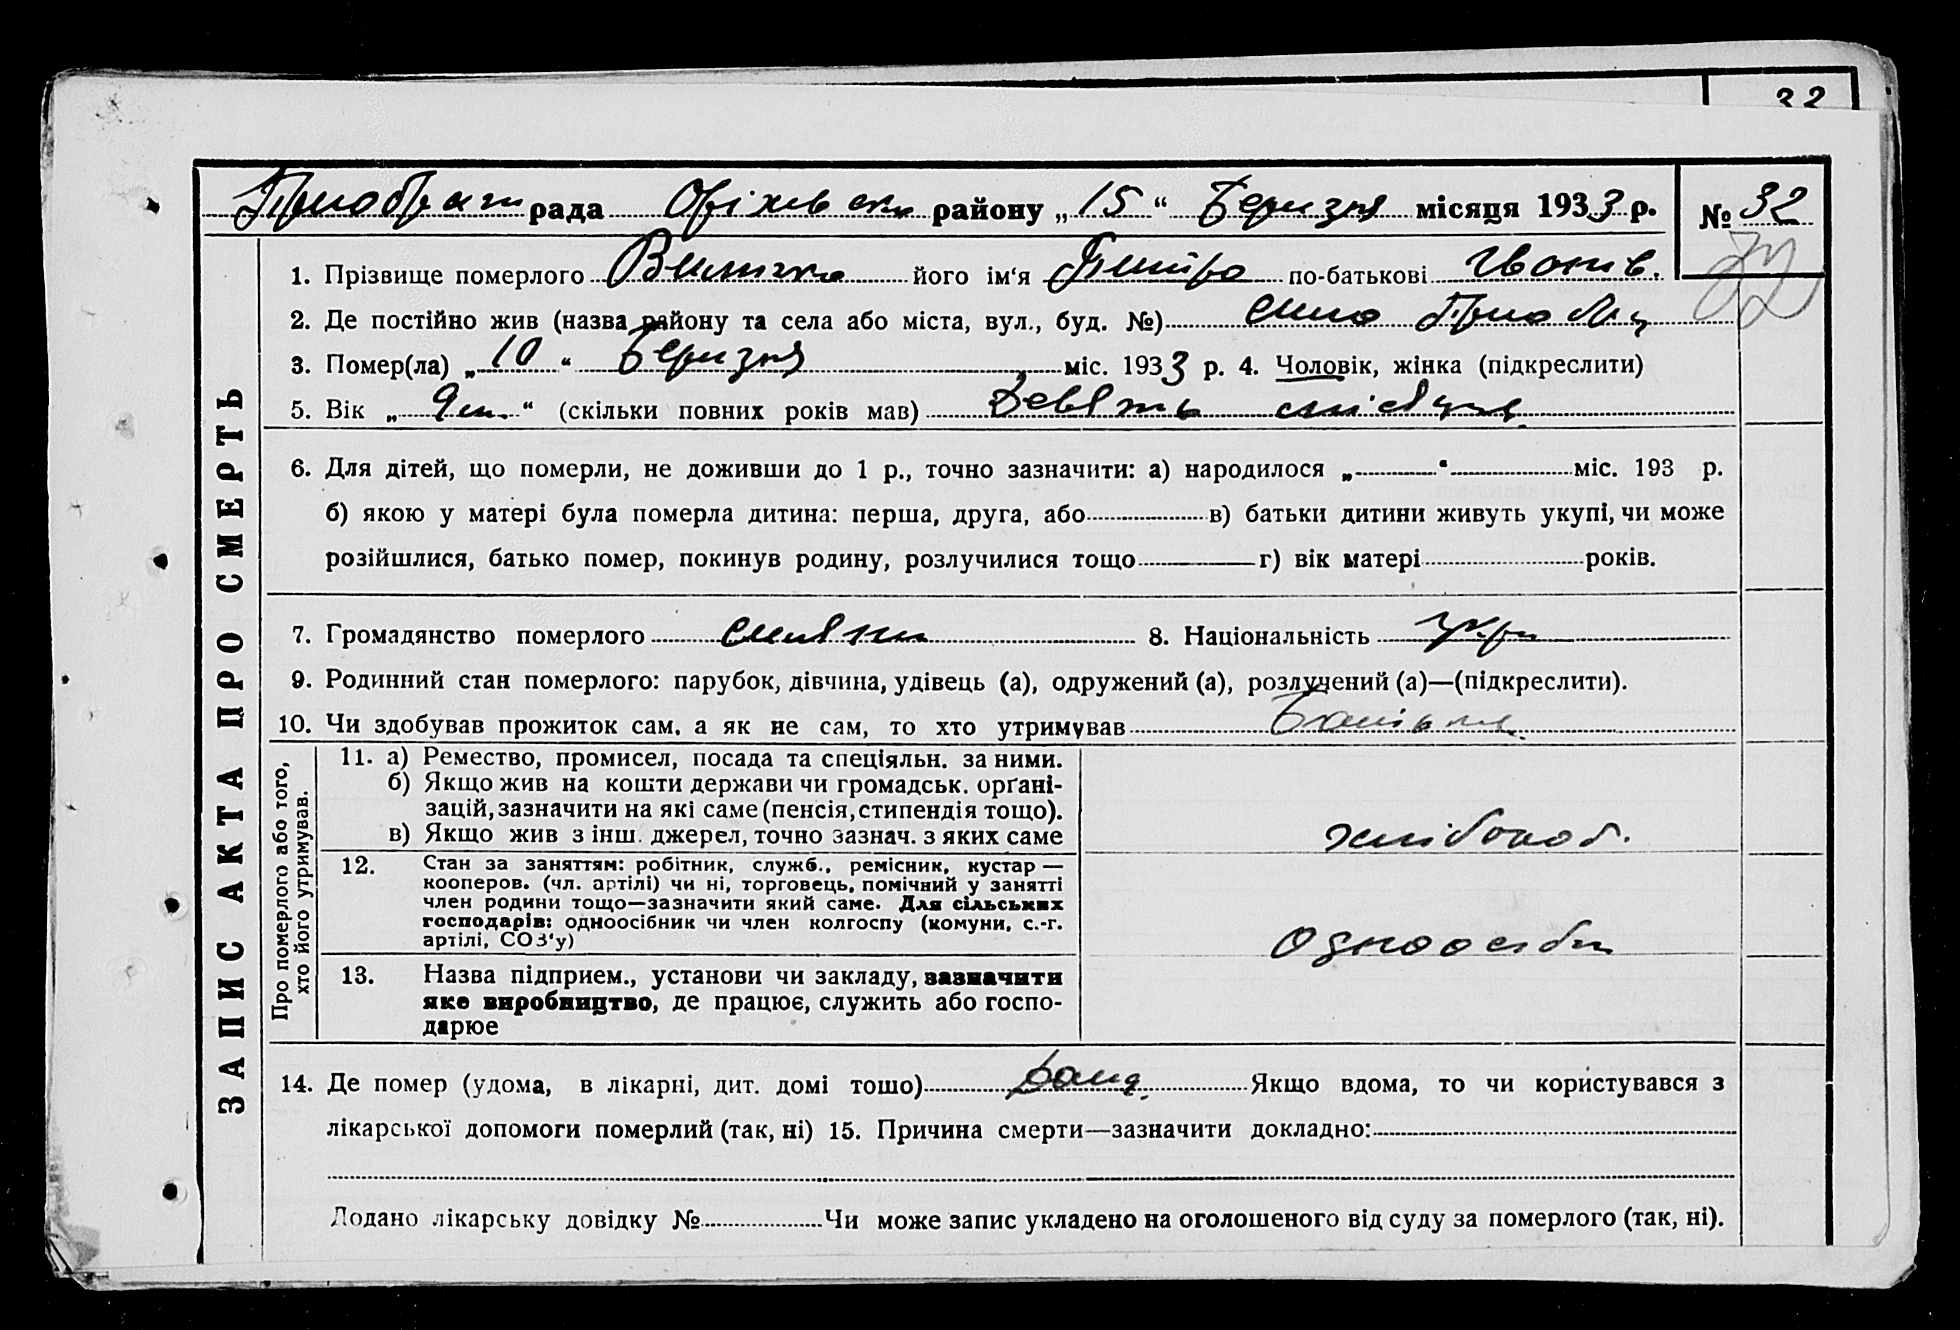 32
рада Оріхівськ району „15“ Березня місяця 1933 р. № 32
1. Прізвище померлого його ім‘я Петро по-батькові
2. Де постійно жив (назва району та села або міста, вул., буд. №) село
3. Помер(ла) „10“ Березня міс. 1933 р. 4. Чоловік, жінка (підкреслити)
5. Вік „9 м.“ (скільки повних років мав) Девять місяців
6. Для дітей, що померли, не доживши до 1 р., точно зазначити: а) народилося „ “ міс. 193 р.
б) якою у матері була померла дитина: перша, друга, або в) батьки дитини живуть укупі, чи може
розійшлися, батько помер, покинув родину, розлучилися тощо г) вік матері років.
7. Громадянство померлого 8. Національність укр
9. Родинний стан померлого: парубок, дівчина, удівець (а), одружений (а), розлучений (а)—(підкреслити).
10. Чи здобував прожиток сам, а як не сам, то хто утримував
11. а) Ремество, промисел, посада та спеціяльн. за ними.
б) Якщо жив на кошти держави чи громадськ. орґані-
зацій, зазначити на які саме (пенсія, стипендія тощо).
в) Якщо жив з інш. джерел, точно зазнач. з яких саме
хлібороб.
12. Стан за заняттям: робітник, служб., ремісник, кустар —
кооперов. (чл. артілі) чи ні, торговець, помічний у занятті
член родини тощо—зазначити який саме. Для сільських
господарів: одноосібник чи член колгоспу (комуни, с.-г.
артілі, СОЗ‘у)
одноосібн
13. Назва підприєм., установи чи закладу, зазначити
яке виробництво, де працює, служить або госпо-
дарює
14. Де помер (удома, в лікарні, дит. домі тошо) дома. Якщо вдома, то чи користувався з
лікарської допомоги померлий (так, ні) 15. Причина смерти—зазначити докладно:
Додано лікарську довідку № Чи може запис укладено на оголошеного від суду за померлого (так, ні).
ЗАПИС АКТА ПРО СМЕРТЬ
Про померлого або того,
хто його утримував.